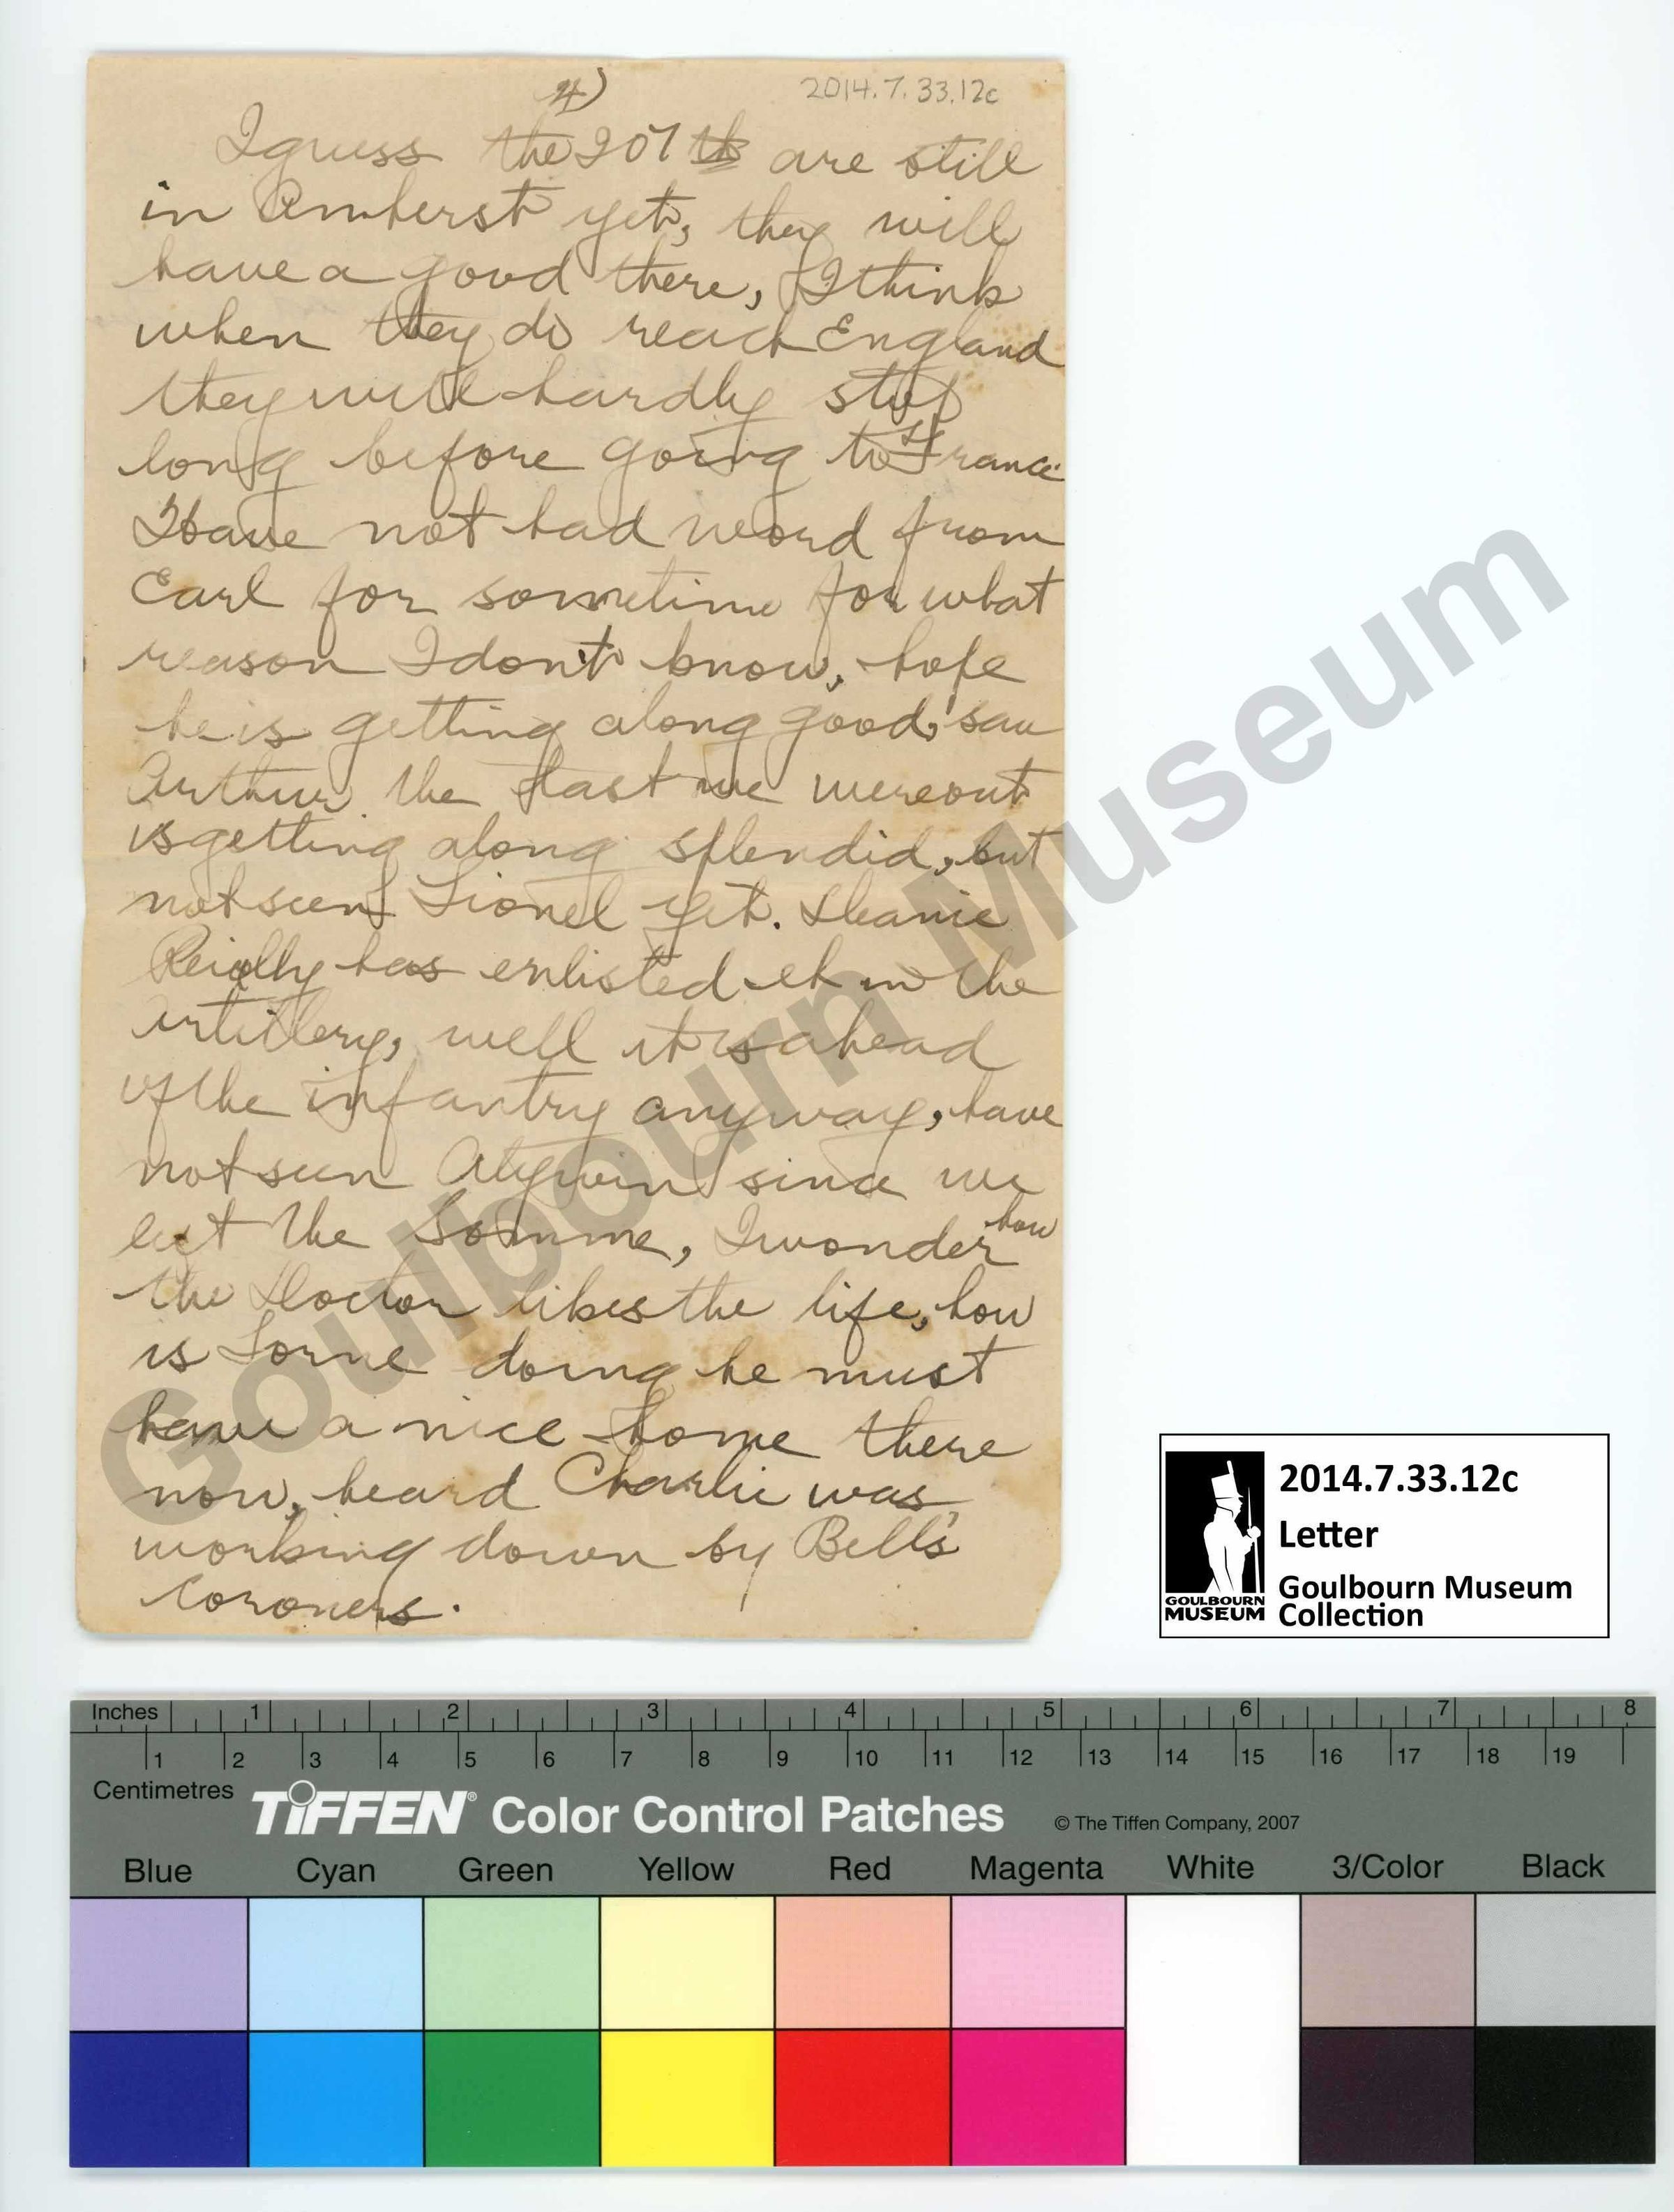 4)
2014.7.33.12c
I guess the 207th are still
in Amherst yet, they will
have a good there, I think
when they do reach England
they will hardly stop
long before going to France
I have not had word from
Earl for sometime for what
reason I don't know, hope
he is getting along good, saw
Arthur the last we were out
is getting along splendid, but
not seen Lionel yet.
Reidly has enlisted eh in the
artillery, well it is ahead
of the infantry anyway, have
not seen since we
left the Somme, I wonder how
the Doctor likes the life, how
is Lorne doing he must
have a nice home there
now, heard Charlie was
working down by Bell's
Coroners.
Goulbourn Museum
GOULBOURN
MUSEUM
2014.7.33.12c
Letter
Goulbourn Museum
Collection
Inches 1 2 3 4 5 6 7 8
1 2 3 4 5 6 7 8 9 10 11 12 13 14 15 16 17 18 19
Centimetres
TIFFEN® Color Control Patches © The Tiffen Company, 2007
Blue Cyan Green Yellow Red Magenta White 3/Color Black